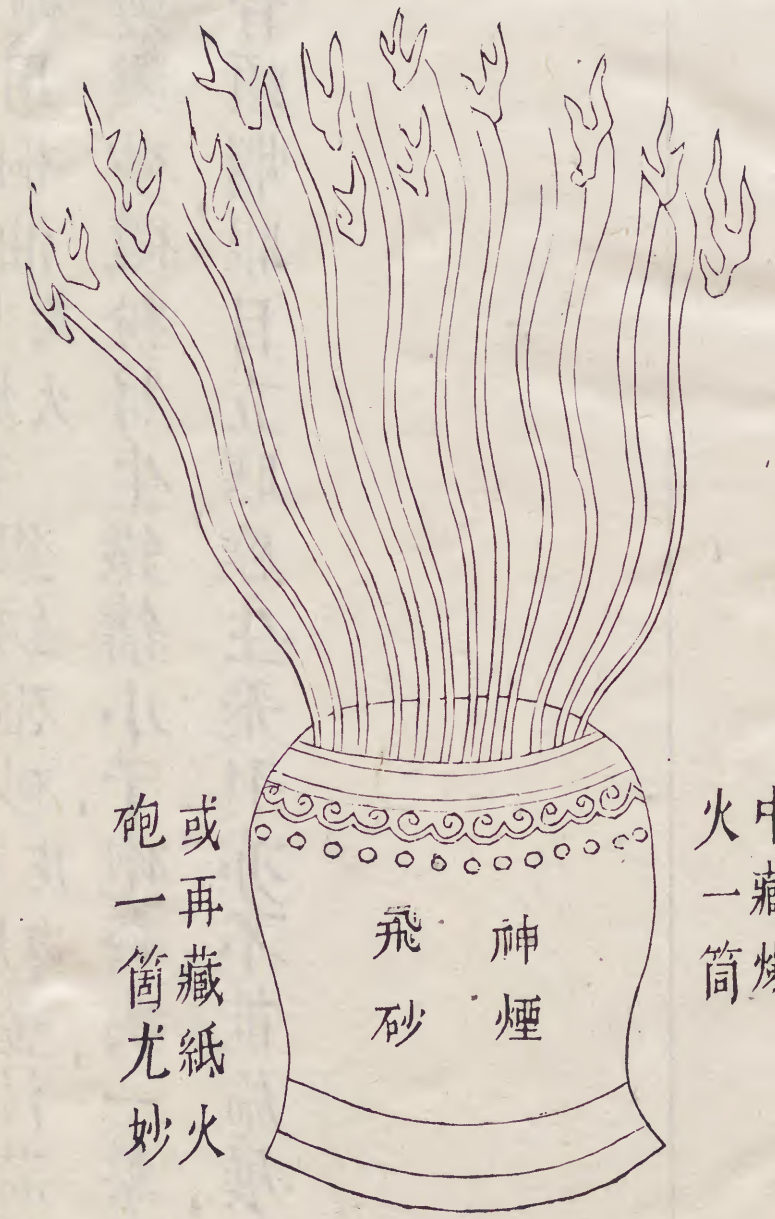 中藏
火一筒
神煙
飛砂
或再藏紙火
砲一箇尤妙